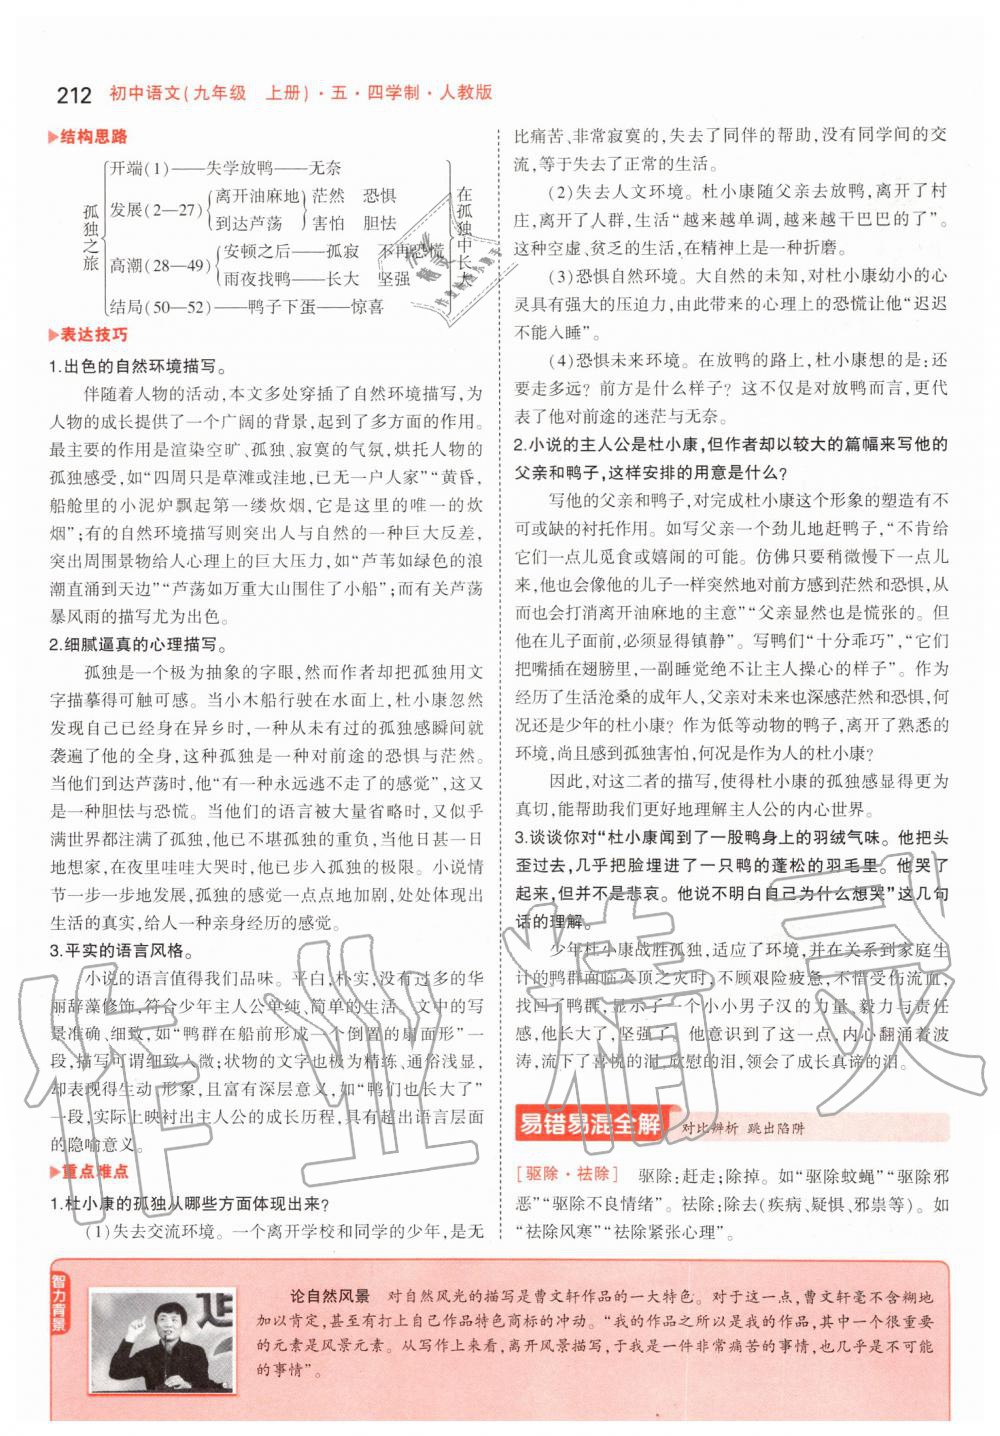 212 初中语文(九年级 上册)·五·四学制·人教版
结构思路
孤独之旅
开端(1)——失学放鸭——无奈
发展(2—27) 离开油麻地 茫然 恐惧
到达芦荡 害怕 胆怯
高潮(28—49) 安顿之后——孤寂 不再恐慌
雨夜找鸭——长大 坚强
结局(50—52)——鸭子下蛋——惊喜
在孤独中长大
表达技巧
1.出色的自然环境描写。
伴随着人物的活动,本文多处穿插了自然环境描写,为
人物的成长提供了一个广阔的背景,起到了多方面的作用。
最主要的作用是渲染空旷、孤独、寂寞的气氛,烘托人物的
孤独感受,如“四周只是草滩或洼地,已无一户人家”“黄昏,
船舱里的小泥炉飘起第一缕炊烟,它是这里的唯一的炊
烟”;有的自然环境描写则突出人与自然的一种巨大反差,
突出周围景物给人心理上的巨大压力,如“芦苇如绿色的浪
潮直涌到天边”“芦荡如万重大山围住了小船”;而有关芦荡
暴风雨的描写尤为出色。
2.细腻逼真的心理描写。
孤独是一个极为抽象的字眼,然而作者却把孤独用文
字描摹得可触可感。当小木船行驶在水面上,杜小康忽然
发现自己已经身在异乡时,一种从未有过的孤独感瞬间就
袭遍了他的全身,这种孤独是一种对前途的恐惧与茫然。
当他们到达芦荡时,他“有一种永远逃不走了的感觉”,这又
是一种胆怯与恐慌。当他们的语言被大量省略时,又似乎
满世界都注满了孤独,他已不堪孤独的重负,当他日甚一日
地想家,在夜里哇哇大哭时,他已步入孤独的极限。小说情
节一步一步地发展,孤独的感觉一点点地加剧,处处体现出
生活的真实,给人一种亲身经历的感觉。
3.平实的语言风格。
小说的语言值得我们品味。平白,朴实,没有过多的华
丽辞藻修饰,符合少年主人公单纯、简单的生活。文中的写
景准确,细致,如“鸭群在船前形成一个倒置的扇面形”一
段,描写可谓细致入微;状物的文字也极为精练、通俗浅显,
却表现得生动、形象,且富有深层意义,如“鸭们也长大了”
一段,实际上映衬出主人公的成长历程,具有超出语言层面
的隐喻意义。
重点难点
1.杜小康的孤独从哪些方面体现出来?
(1)失去交流环境。一个离开学校和同学的少年,是无
比痛苦、非常寂寞的,失去了同伴的帮助,没有同学间的交
流,等于失去了正常的生活。
(2)失去人文环境。杜小康随父亲去放鸭,离开了村
庄,离开了人群,生活“越来越单调,越来越干巴巴的了”。
这种空虚、贫乏的生活,在精神上是一种折磨。
(3)恐惧自然环境。大自然的未知,对杜小康幼小的心
灵具有强大的压迫力,由此带来的心理上的恐慌让他“迟迟
不能入睡”。
(4)恐惧未来环境。在放鸭的路上,杜小康想的是:还
要走多远?前方是什么样子?这不仅是对放鸭而言,更代
表了他对前途的迷茫与无奈。
2.小说的主人公是杜小康,但作者却以较大的篇幅来写他的
父亲和鸭子,这样安排的用意是什么?
写他的父亲和鸭子,对完成杜小康这个形象的塑造有不
可或缺的衬托作用。如写父亲一个劲儿地赶鸭子,“不肯给
它们一点儿觅食或嬉闹的可能。仿佛只要稍微慢下一点儿
来,他也会像他的儿子一样突然地对前方感到茫然和恐惧,从
而也会打消离开油麻地的主意”“父亲显然也是慌张的。但
他在儿子面前,必须显得镇静”。写鸭们“十分乖巧”,“它们
把嘴插在翅膀里,一副睡觉绝不让主人操心的样子”。作为
经历了生活沧桑的成年人,父亲对未来也深感茫然和恐惧,何
况还是少年的杜小康?作为低等动物的鸭子,离开了熟悉的
环境,尚且感到孤独害怕,何况是作为人的杜小康?
因此,对这二者的描写,使得杜小康的孤独感显得更为
真切,能帮助我们更好地理解主人公的内心世界。
3.谈谈你对“杜小康闻到了一股鸭身上的羽绒气味。他把头
歪过去,几乎把脸埋进了一只鸭的蓬松的羽毛里。他哭了
起来,但并不是悲哀。他说不明白自己为什么想哭”这几句
话的理解。
少年杜小康战胜孤独,适应了环境,并在关系到家庭生
计的鸭群面临灭顶之灾时,不顾艰险疲惫,不惜受伤流血,
找回了鸭群,显示了一个小小男子汉的力量、毅力与责任
感,他长大了,坚强了。他意识到了这一点,内心翻涌着波
涛,流下了喜悦的泪、欣慰的泪,领会了成长真谛的泪。
易错易混全解 对比辨析 跳出陷阱
[驱除·祛除] 驱除:赶走;除掉。如“驱除蚊蝇”“驱除邪
恶”“驱除不良情绪”。祛除:除去(疾病、疑惧、邪祟等)。如
“祛除风寒”“祛除紧张心理”。
智力背景
论自然风景 对自然风光的描写是曹文轩作品的一大特色。对于这一点,曹文轩毫不含糊地
加以肯定,甚至有打上自己作品特色商标的冲动。“我的作品之所以是我的作品,其中一个很重要
的元素是风景元素。从写作上来看,离开风景描写,于我是一件非常痛苦的事情,也几乎是不可能
的事情”。
作业精灵